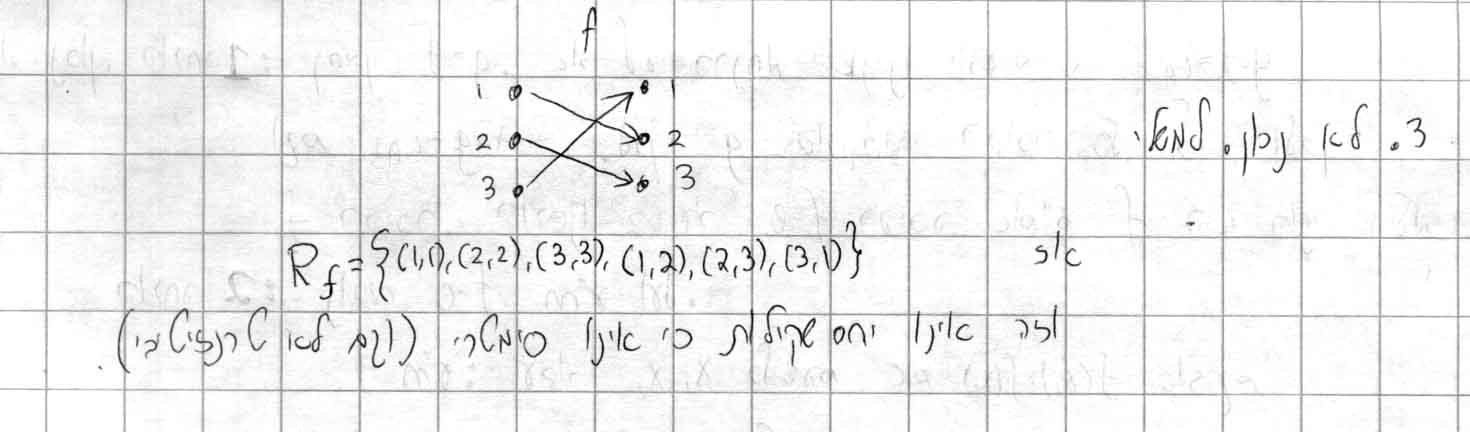 3. לא נכון. למשל:
f
1 1
2 2
3 3
אז R_f = {(1,1), (2,2), (3,3), (1,2), (2,3), (3,1)}
וזה אינו יחס שקילות כי אינו סימטרי (וגם לא טרנזיטיבי).